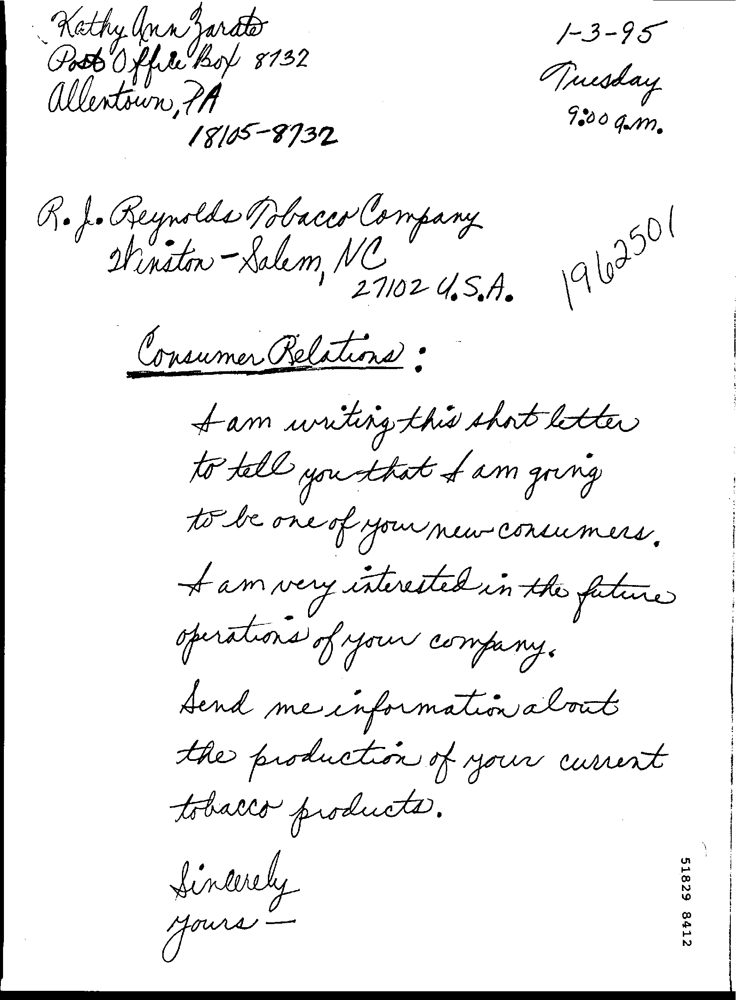 Kathy Ann Zarate
Post Office Box 8732
Allentown, PA
18105-8732
1-3-95
Tuesday
9:00 a.m.
R. J. Reynolds Tobacco Company
Winston-Salem, NC
27102 U.S.A.
1962501
Consumer Relations:
I am writing this short letter
to tell you that I am going
to be one of your new consumers.
I am very interested in the future
operations of your company.
Send me information about
the production of your current
tobacco products.
Sincerely
yours —
51829 8412